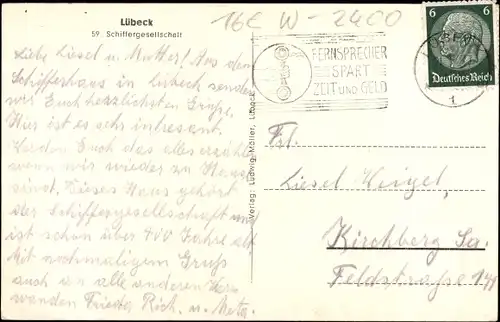 Lübeck
59 Schiffergesellschaft
16€ W-2400
Liebe Liesel u. Mutter! Aus dem
Schifferhaus in Lübeck senden
wir Euch herzlichsten Grüße.
Hier ist es sehr intresant.
Werden Euch das alles erzählen
wenn wir wieder zu Hause
sind. Dieses Haus gehört
der Schiffergesellschaft und
ist schon über 400 Jahre alt
Mit nochmaligem Gruß
auch an alle anderen Ver-
wanden Frieda Rich. u. Meta.
Verlag: Ludwig Möller, Lübeck
FERNSPRECHER
SPART
ZEIT UND GELD
6 6
Deutsches Reich
1
Frl.
Liesel Weigel,
Kirchberg Sa.
Feldstraße